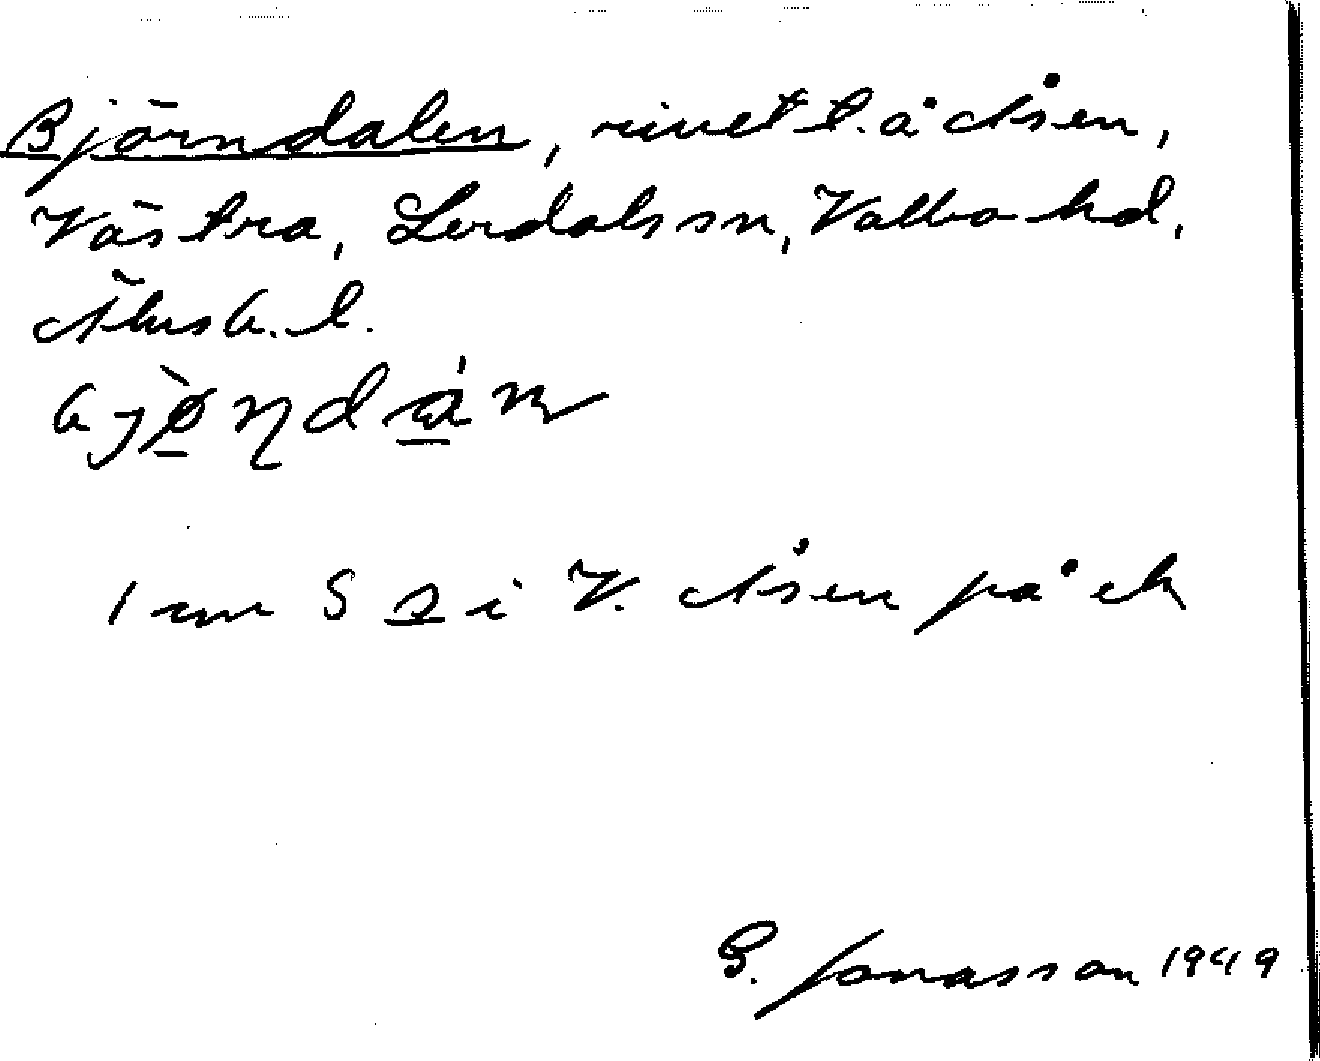 Björndalen, rivet t. å Åsen,
Västra, Lerdals sn, Valbo hd,
Älvsb. l.
bjø̀ṇdán
1 mm S o i V. Åsen på ek
G. Jonasson 1949